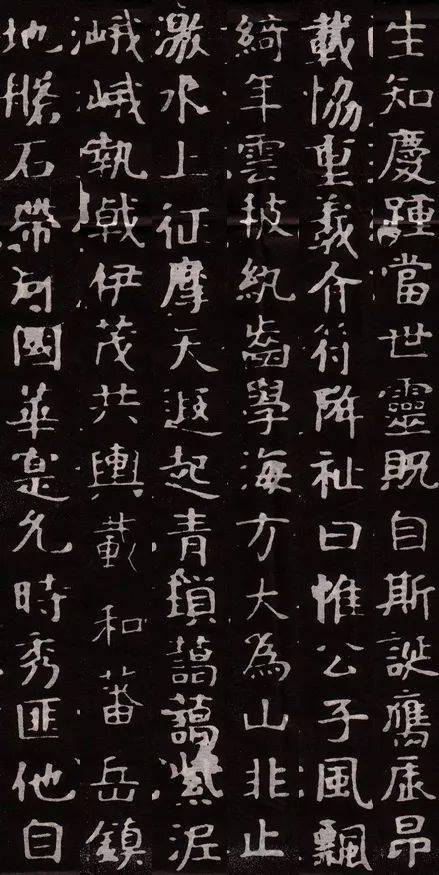 生知慶踵當世靈既自斯誕膺辰昴
載協重羲介符降祉曰惟公子風飄
綺年雲披紈齒學海方大為山非止
激水上征摩天遐起青瑣藹藹紫渥
峨峨執戟伊茂共輿載和蕃岳鎮
地石帶河國華寔允時秀匪他自